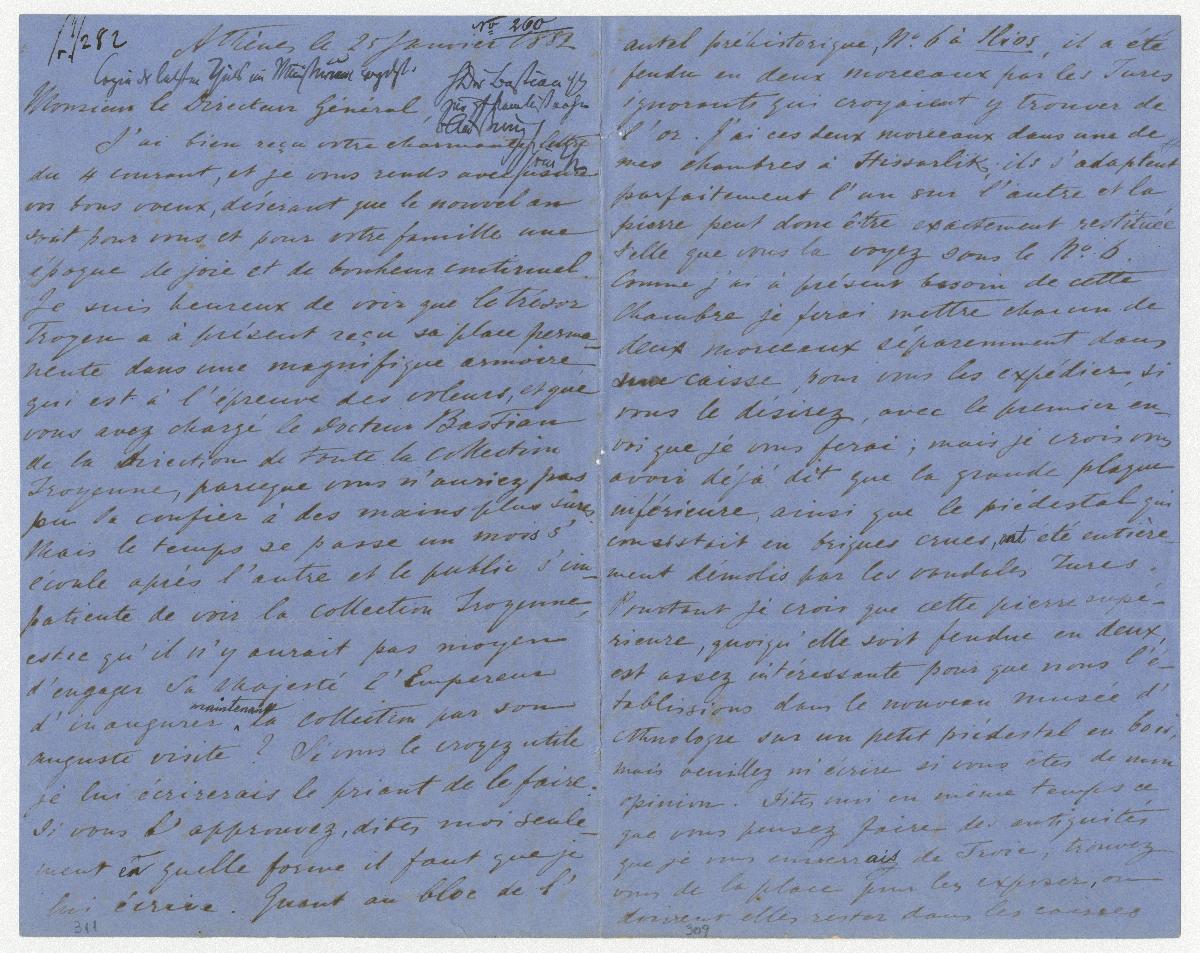 282
No 260
Athènes le 25 Janvier 1882
Monsieur le Directeur Général,
J'ai bien reçu votre charmante lettre
du 4 courant, et je vous rends avec
vos bons voeux, désirant que le nouvel an
soit pour vous et pour votre famille une
époque de joie et de bonheur continuel.
Je suis heureux de voir que le trésor
Troyen a à présent reçu sa place perma-
nente dans une magnifique armoire
qui est à l'épreuve des voleurs, et que
vous avez chargé le Docteur Bastian
de la Direction de toute la collection
Troyenne, parceque vous n'auriez pas
pu la confier à des mains plus sûres.
Mais le temps se passe un mois s'
écoule après l'autre et le public s'im-
patiente de voir la collection Troyenne,
estce qu'il n'y aurait pas moyen
d'engager Sa Majesté l'Empereur
maintenant
d'inaugurer la collection par son
auguste visite? Si vous le croyez utile
je lui écrirerais le priant de le faire.
Si vous l'approuvez, dites moi seule-
ment en quelle forme il faut que je
lui écrive. Quant au bloc de l'
311
autel préhistorique, No. 6 à Ilios, il a été
fendu en deux morceaux par les Turcs
ignorants qui croyaient y trouver de
l'or. J'ai ces deux morceaux dans une de
mes chambres à Hissarlik, ils s'adaptent
parfaitement l'un sur l'autre et la
pierre peut donc être exactement restituée
telle que vous la voyez sous le No. 6.
Comme j'ai à présent besoin de cette
chambre je ferai mettre chacun de
deux morceaux séparemment dans
une caisse, pour vous les expédier, si
vous le désirez, avec le premier en
voi que je vous ferai; mais je crois vous
avoir déjà dit que la grande plaque
inférieure, ainsi que le piédestal qui
consistait en briques crues, ont été entière-
ment démolis par les vandales Turcs.
Pourtant je crois que cette pierre supé-
rieure, quoiqu'elle soit fendue en deux,
est assez intéressante pour que nous l'é-
tablissions dans le nouveau musée d'
ethnologie sur un petit piédestal en bois,
mais veuillez m'écrire si vous êtes de mon
opinion. Dites moi en même temps ce
que vous pensez faire des antiquités
que je vous enverrais de Troie; trouvez
vous de la place pour les exposer, ou
doivent elles rester dans les caisses
309